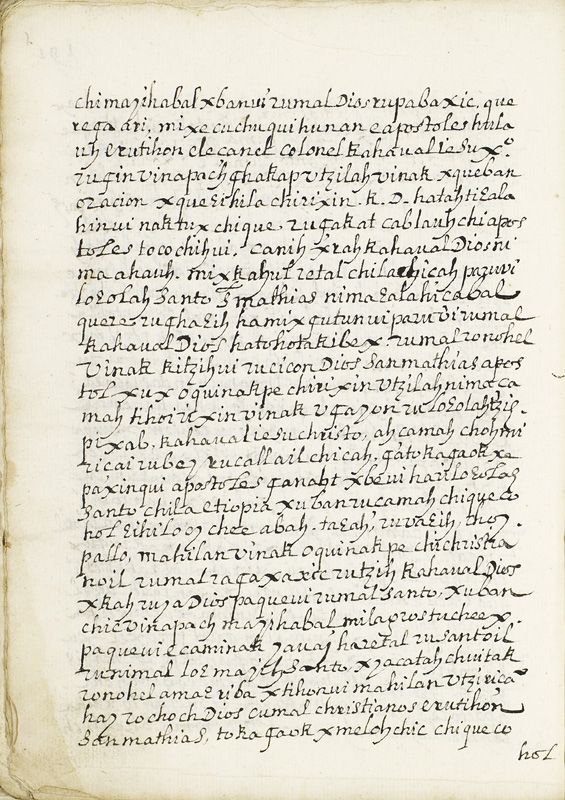 chimayihabal xbanvi rumal Dios rupabaxic. que
rega ari. mixecuchuqui hunan e apostoles hula
uh erutihon elecanel colonel kahaual iesu xº.
rugin vinapach ghakap vtzilah vinak xqueban
oracion xqueɛihila chirixin. k. D. hatahtiɛala
hinvi naktux chique. rugakat cablauh chi apos
toles tocochihui. canih xrah kahaual Dios ni
ma ahauh. mixkahul retal chila chicah paruvi
loɛolah Santo S mathias nimaɛalahicabal
quere rughaɛih hamixqutunvi paruvi rumal
kahaual Dios hatohotakibex. rumal ronohel
Vinak kitzihvi rucicon Dios San mathias apos
tol xux oquinakpe chirixin vtzilah nimaca
mah tihoricxin vinak vgayon ruloɛolah tzih
pixab. kahaual iesu christo, ahcamah chohmi
ricai rubey rucallail chicah. gatokagaok xe
paxinqui apostoles ganabt xbevi hari loɛolah
Santo chila etiopia xuban rucamah chique co
hol ɛihiloy chee abah. taɛah, ruvaɛih, thoy.
pallo, mahilan vinak oquinakpe chichristia
noil rumal ragaxaxic rutzih kahaual Dios
xkahruya Dios paquevi rumal Santo, xuban
chic vinapach mayihabal milagros tucheex.
paquevi ecaminak yavay haretal rusantoil
runimal loɛmayih Santo. xyacatah chuitak
ronohel amaɛ riba xtihonvi mahilan vtzirica
hay rochoch Dios cumal christianos erutihon
San mathias, tokagaok xmeloh chic chique co
hol